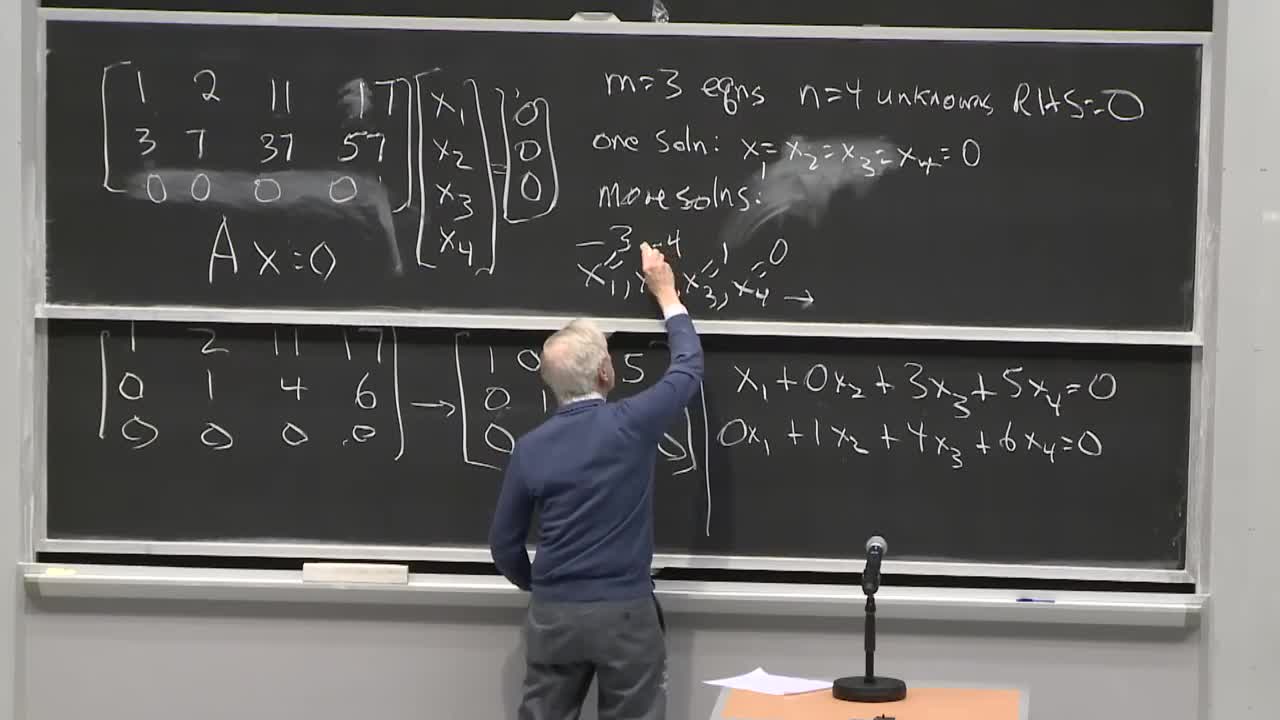 1 2 11 17 x1 0
3 7 37 57 x2 = 0
0 0 0 0 x3 0
x4
Ax=0
m=3 eqns n=4 unknowns RHS=0
one soln: x1=x2=x3=x4=0
more solns:
-3 -4 1 0
x1, x3, x4 →
1 2 11 17
0 1 4 6
0 0 0 0
→
1 0 5
0 1
0 0
x1+0x2+3x3+5x4=0
0x1+1x2+4x3+6x4=0